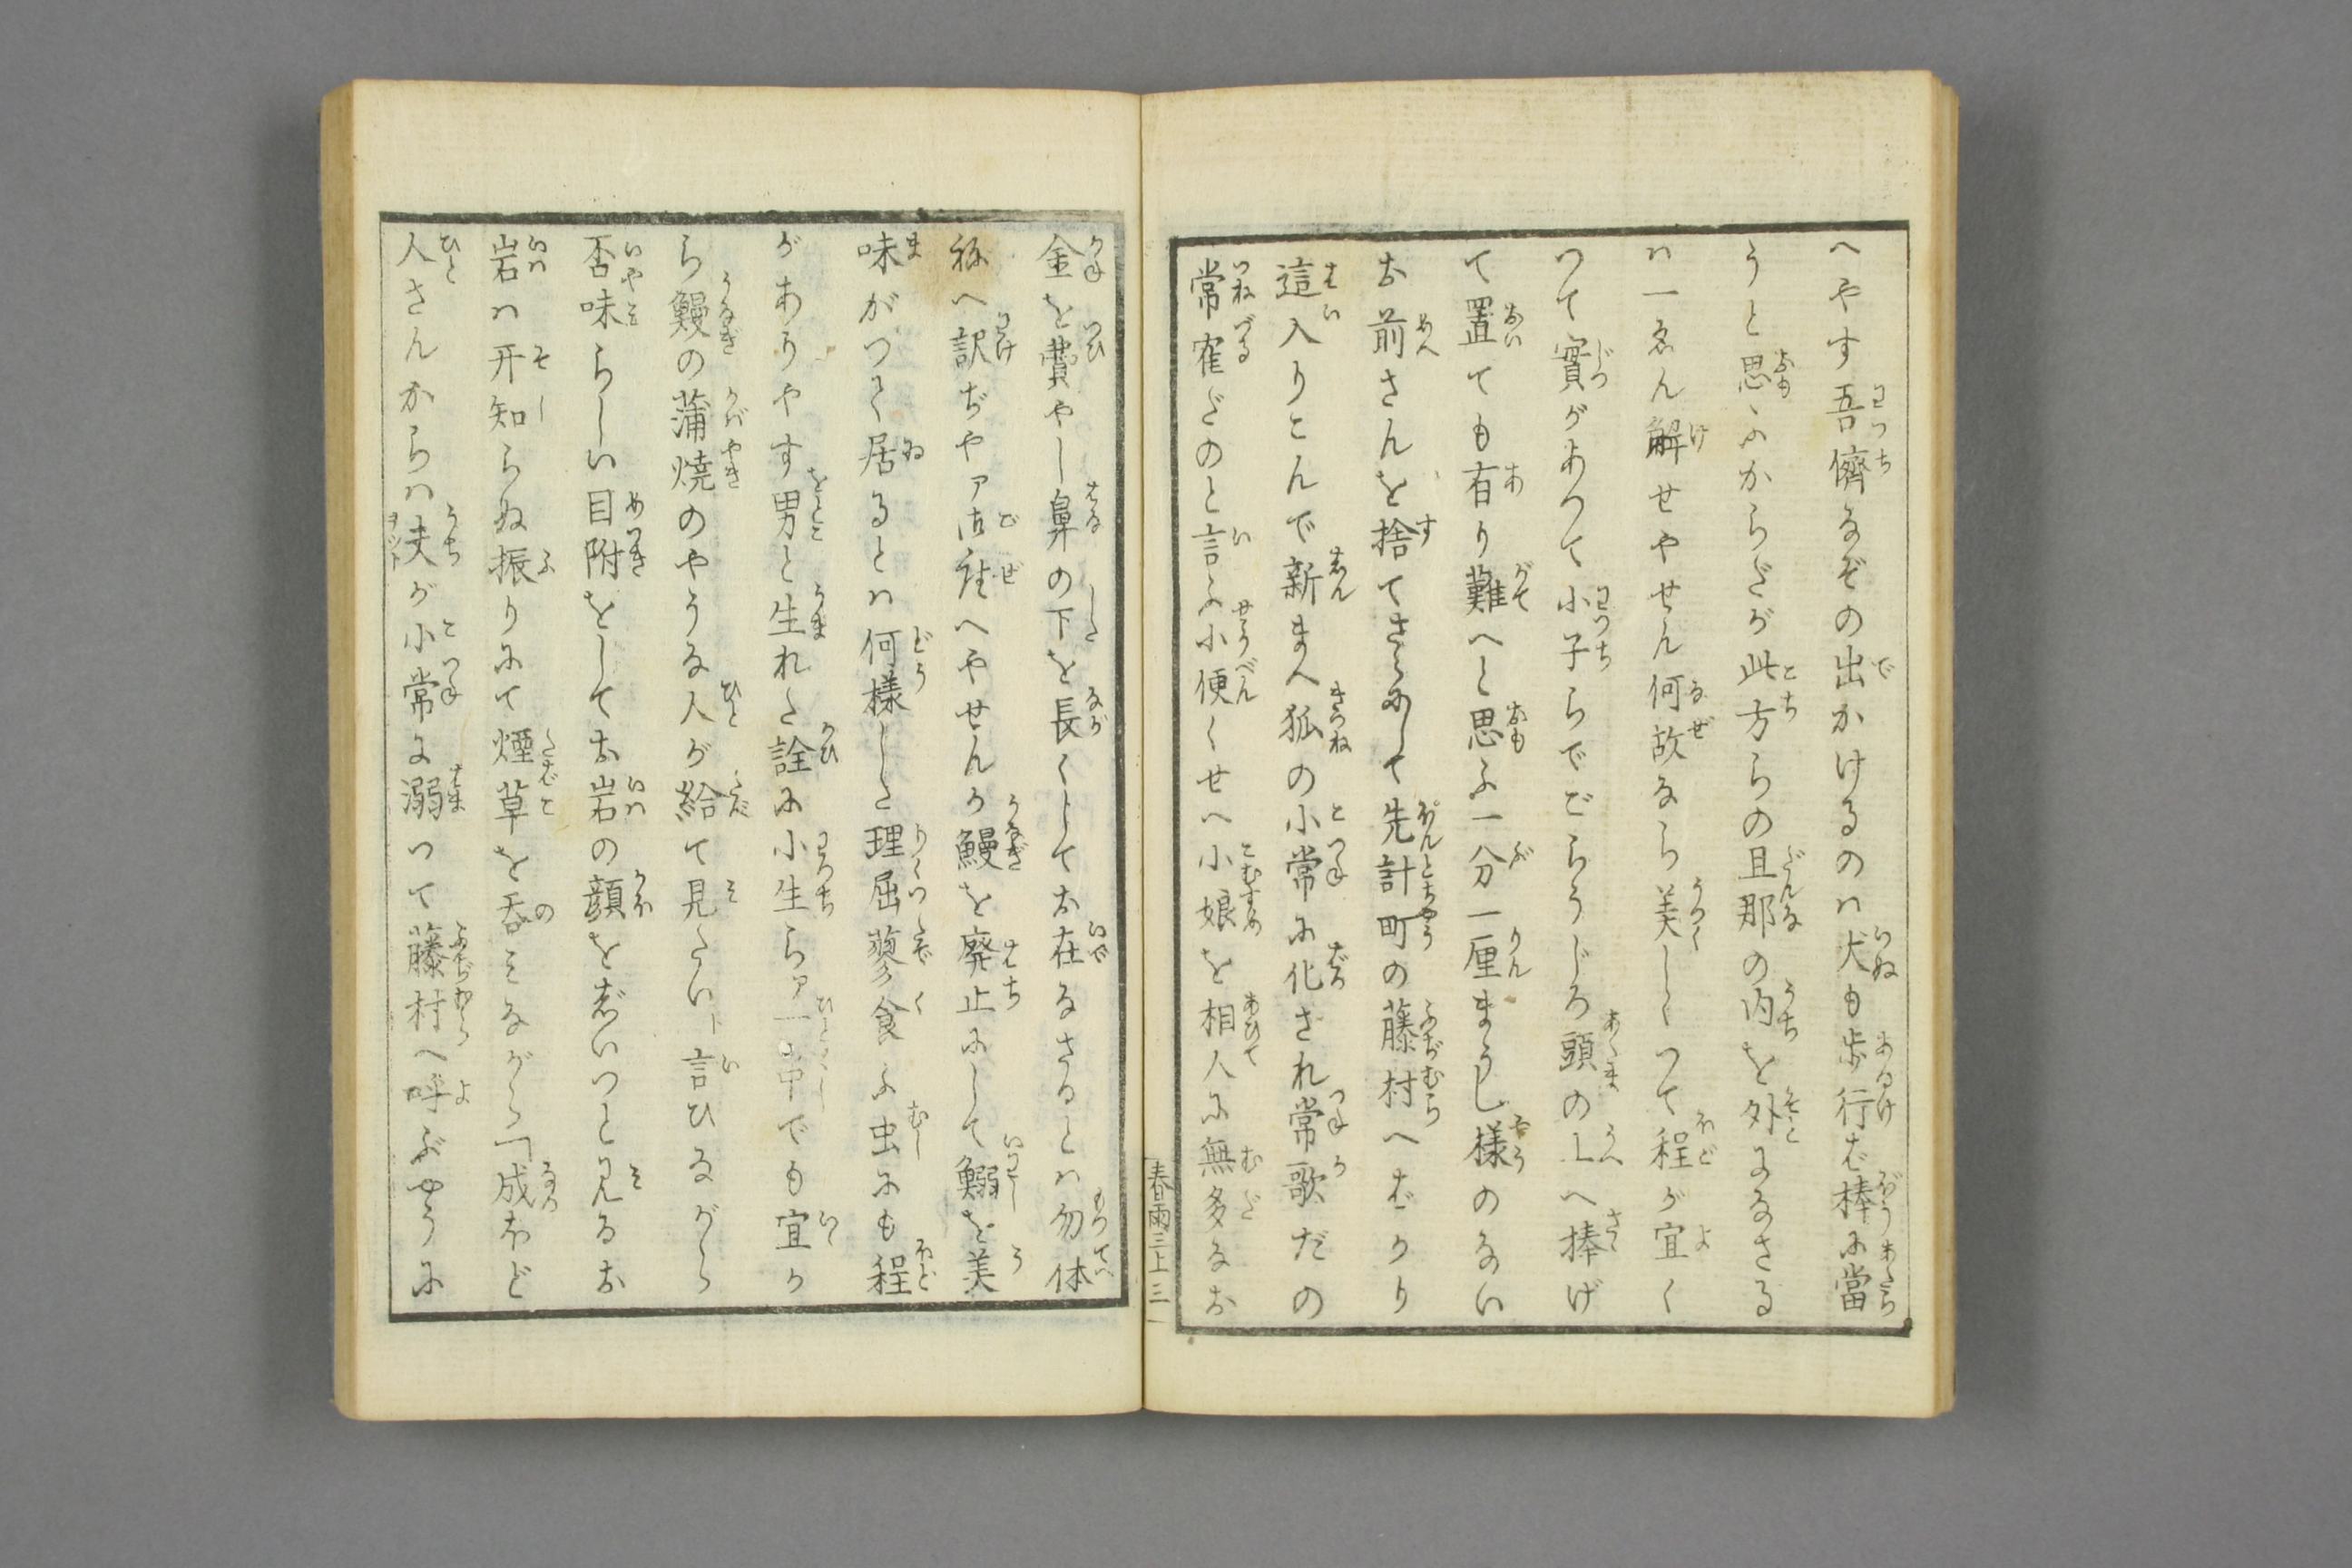 へやす吾儕なぞの出かけるのハ犬も歩行ば棒に當
うと思ふからだが此方らの旦那の内を外になさる
ハ一ゑん解せやせん何故なら美しくつて程が宜く
つて實があつて小子らでごらうじろ頭の上へ捧げ
て置ても有り難へと思ふ一分一厘まうし様のない
お前さんを捨てさしおいて先計町の藤村へばかり
這入りこんで新まへ狐の小常に化され常歌だの
常雀だのと言ふ小便くせへ小娘を相人に無多なお
春雨三上 三
金を費やし鼻の下を長くしてお在なさるとハ勿体
ねへ訳ぢやア御座へやせんか鰻を廃止にして鰯を美
味がつて居るとハ何樣した理屈蓼食ふ虫にも程
がありやす男と生れた詮に小生らア一ト串でも宜か
ら鰻の蒲焼のやうな人が給て見たいト言ひながら
否味らしい目附をしてお岩の顔をぢいつと見るお
岩ハ不知らぬ振りにて煙草を呑みながら「成ほど
人さんからハ夫が小常に溺つて藤村へ呼ぶやうに